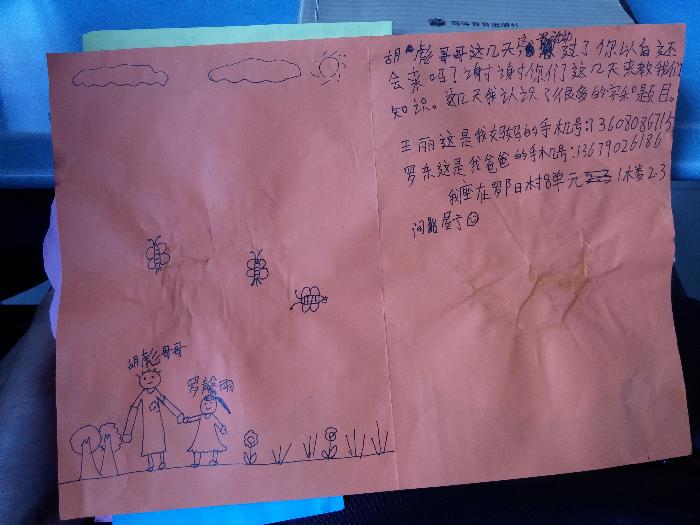 高等教育出版社
胡彪哥哥这几天活动过了你以后还
会来吗？谢谢你们了这几天来教我们
知识。这几天我认识了很多的字和题目。
王丽这是我妈妈的手机号:13608086715
罗东这是我爸爸的手机号:13679026186
我座在罗阳村8单元1楼2.3
间屋子
胡彪哥哥
罗馨雨